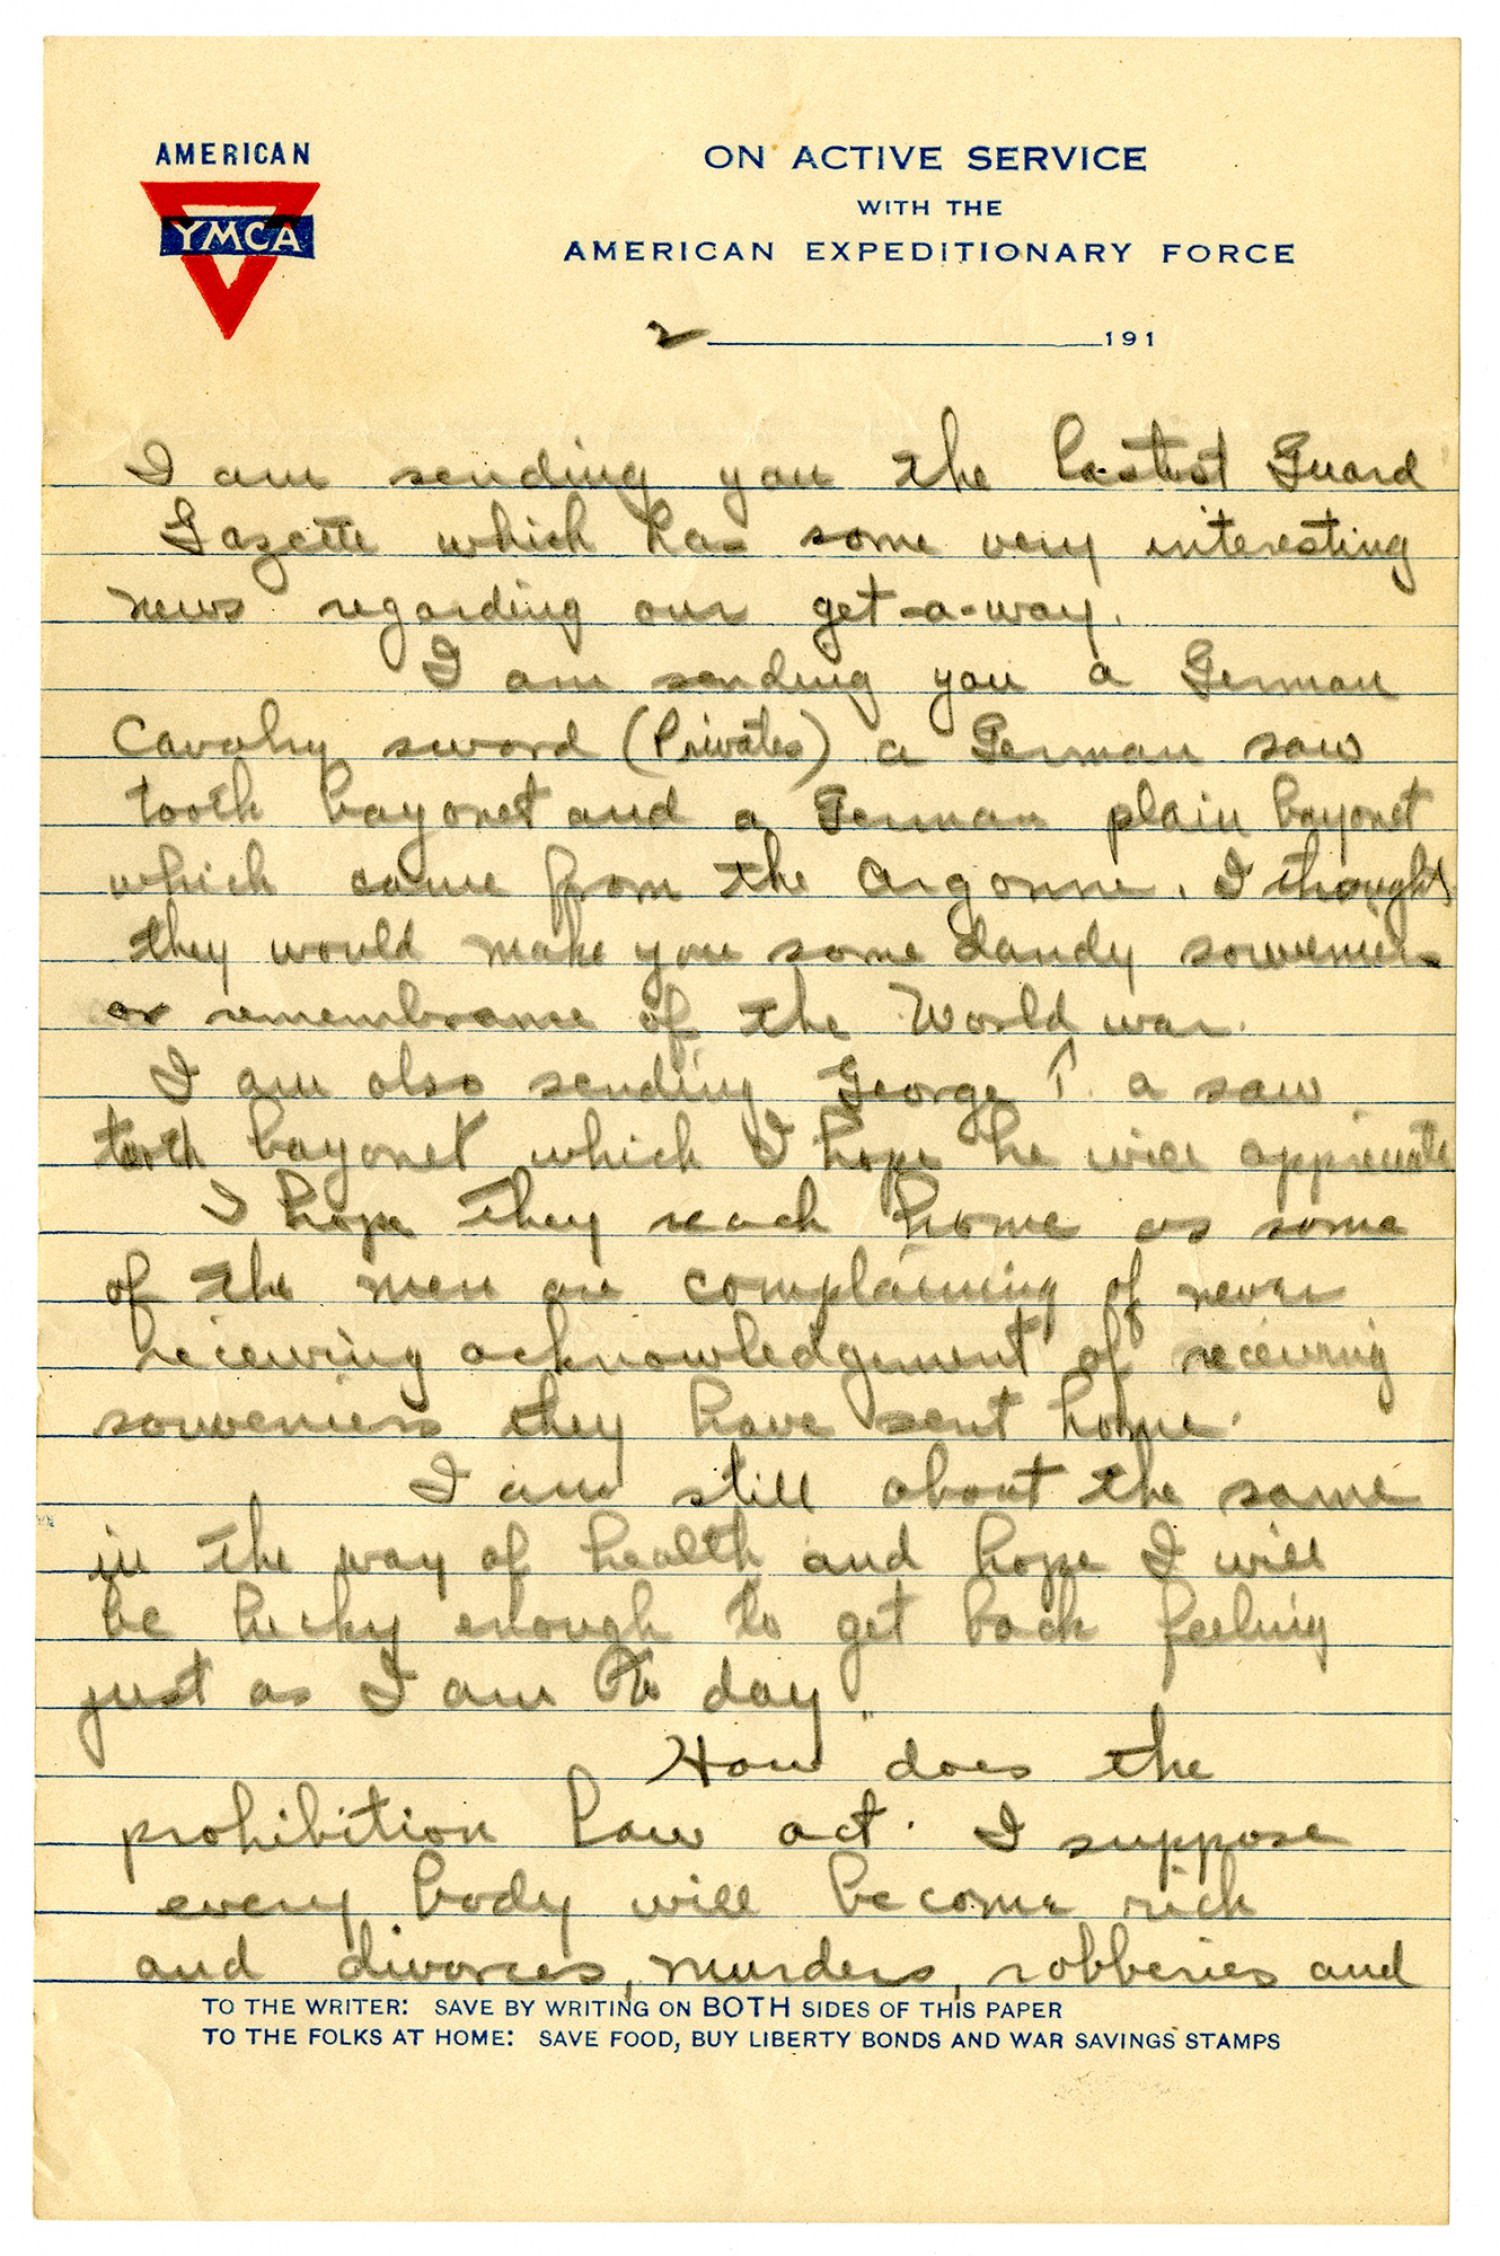 AMERICAN
YMCA
ON ACTIVE SERVICE
WITH THE
AMERICAN EXPEDITIONARY FORCE
2 191
I am sending you the lastest Guard
Gazette which has some very interesting
news regarding our get-a-way.
I am sending you a German
Cavalry sword (Privates) a German saw
tooth bayonet and a German plain bayonet
which came from the Argonne. I thought
they would make you some dandy souveniers
or remembrance of the World war.
I am also sending George T. a saw
tooth bayonet which I hope he will appreciate
I hope they reach home as some
of the men are complaining of never
recieving acknowledgement of recieving
souveniers they have sent home.
I am still about the same
in the way of health and hope I will
be lucky enough to get back feeling
just as I am to day
How does the
prohibition law act. I suppose
every body will become rich
and divorces, murders, robberies and
TO THE WRITER: SAVE BY WRITING ON BOTH SIDES OF THIS PAPER
TO THE FOLKS AT HOME: SAVE FOOD, BUY LIBERTY BONDS AND WAR SAVINGS STAMPS